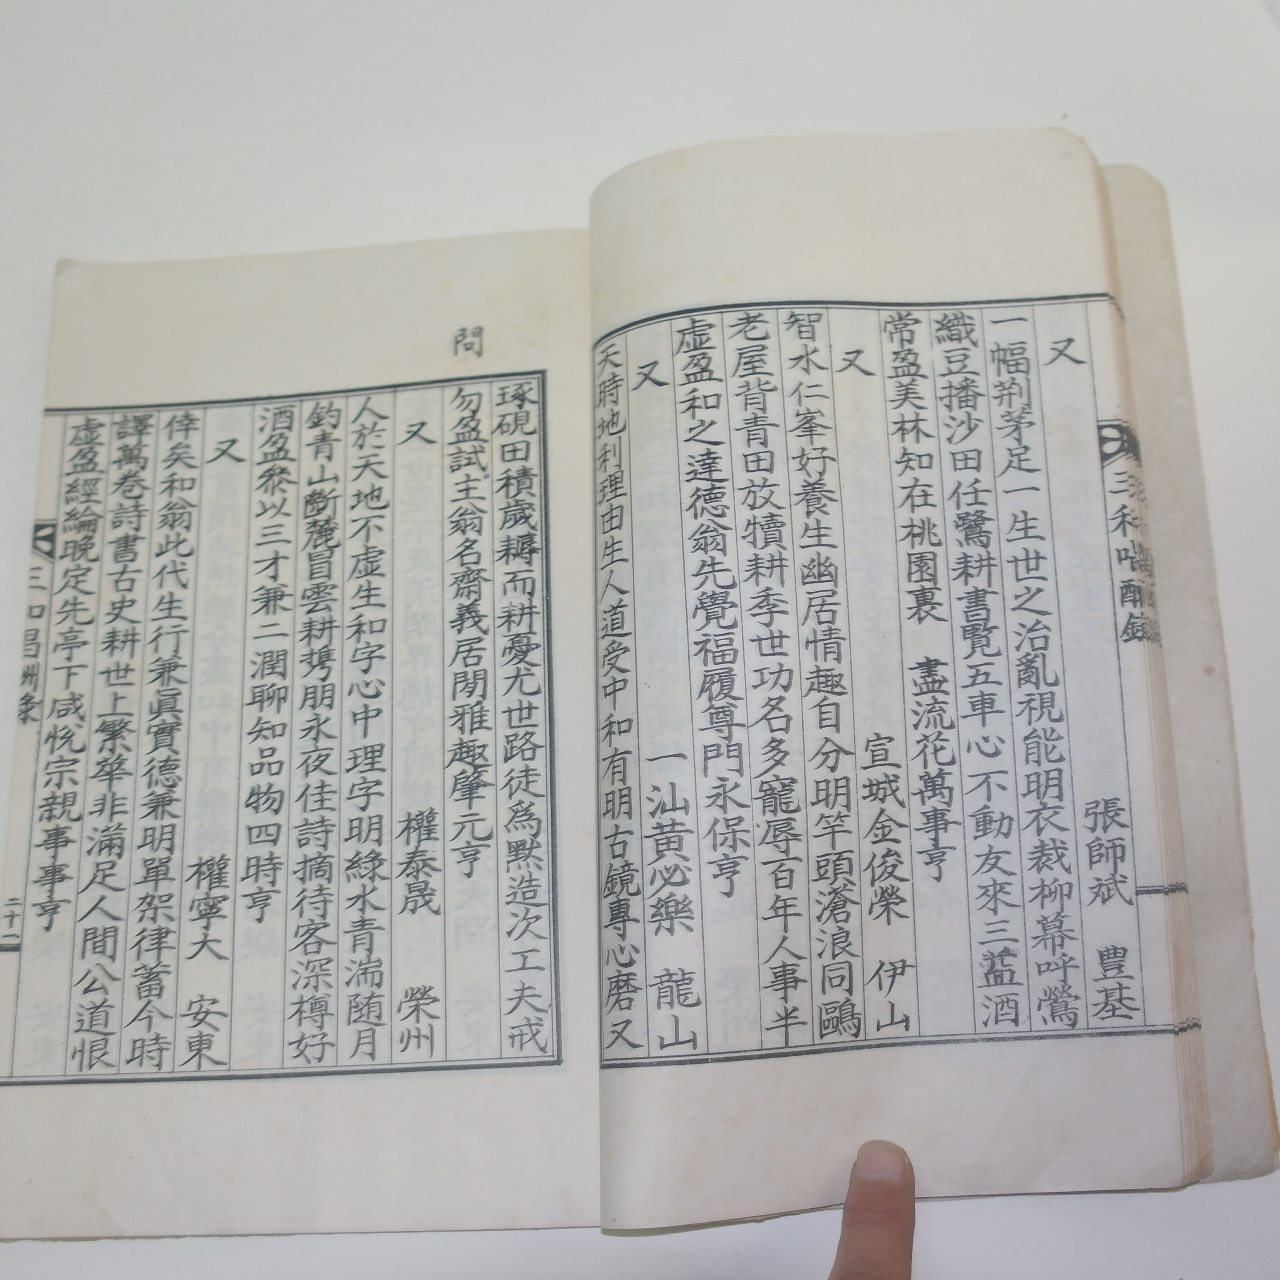 又　張師斌　豊基
一幅荆茅足一生世之治亂視能明衣裁柳幕呼鶯
織豆播沙田任鷺耕書覧五車心不動友來三藍酒
常盈美林知在桃園裏　盡流花萬事亨
又　宣城金俊榮　伊山
智水仁峯好養生幽居情趣自分明竿頭滄浪同鷗
老屋背青田放犢耕季世功名多寵辱百年人事半
虚盈和之達德翁先覺福履尊門永保亨
又　一汕黃必樂　龍山
天時地利理由生人道受中和有明古鏡專心磨又
琢硯田積歲耨而耕憂尤世路徒爲默造次工夫戒
勿盈試主翁名齋義居閒雅趣肇元亨
又　權泰晟　榮州
人於天地不虚生和字心中理字明綠水青湍随月
釣青山斷麓冒雲耕携朋永夜佳詩摘待客深樽好
酒盈叅以三才兼二潤聊知品物四時亨
又　權寧大　安東
倖矣和翁此代生行兼眞實德兼明單架律蓄今時
譯萬卷詩書古史耕世上繁華非滿足人間公道恨
虚盈經綸晚定先亭下咸悅宗親事事亨
問
三和唱酬錄
二十一